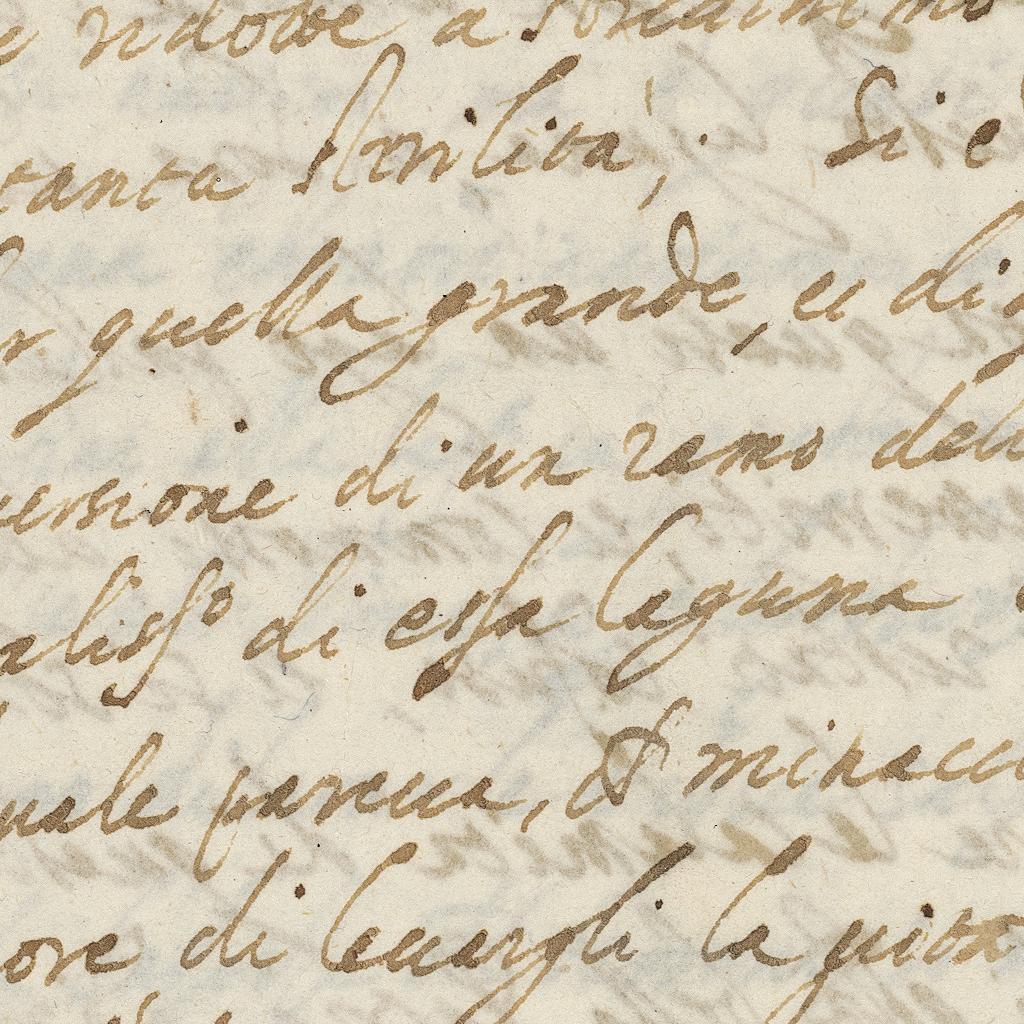 e ridotte a
tanta sterilità; Si è
quella grande, et di
versione di un ramo dell
aliss.o di essa laguna
uale pareua, & minacci
ore di leuargli la uita